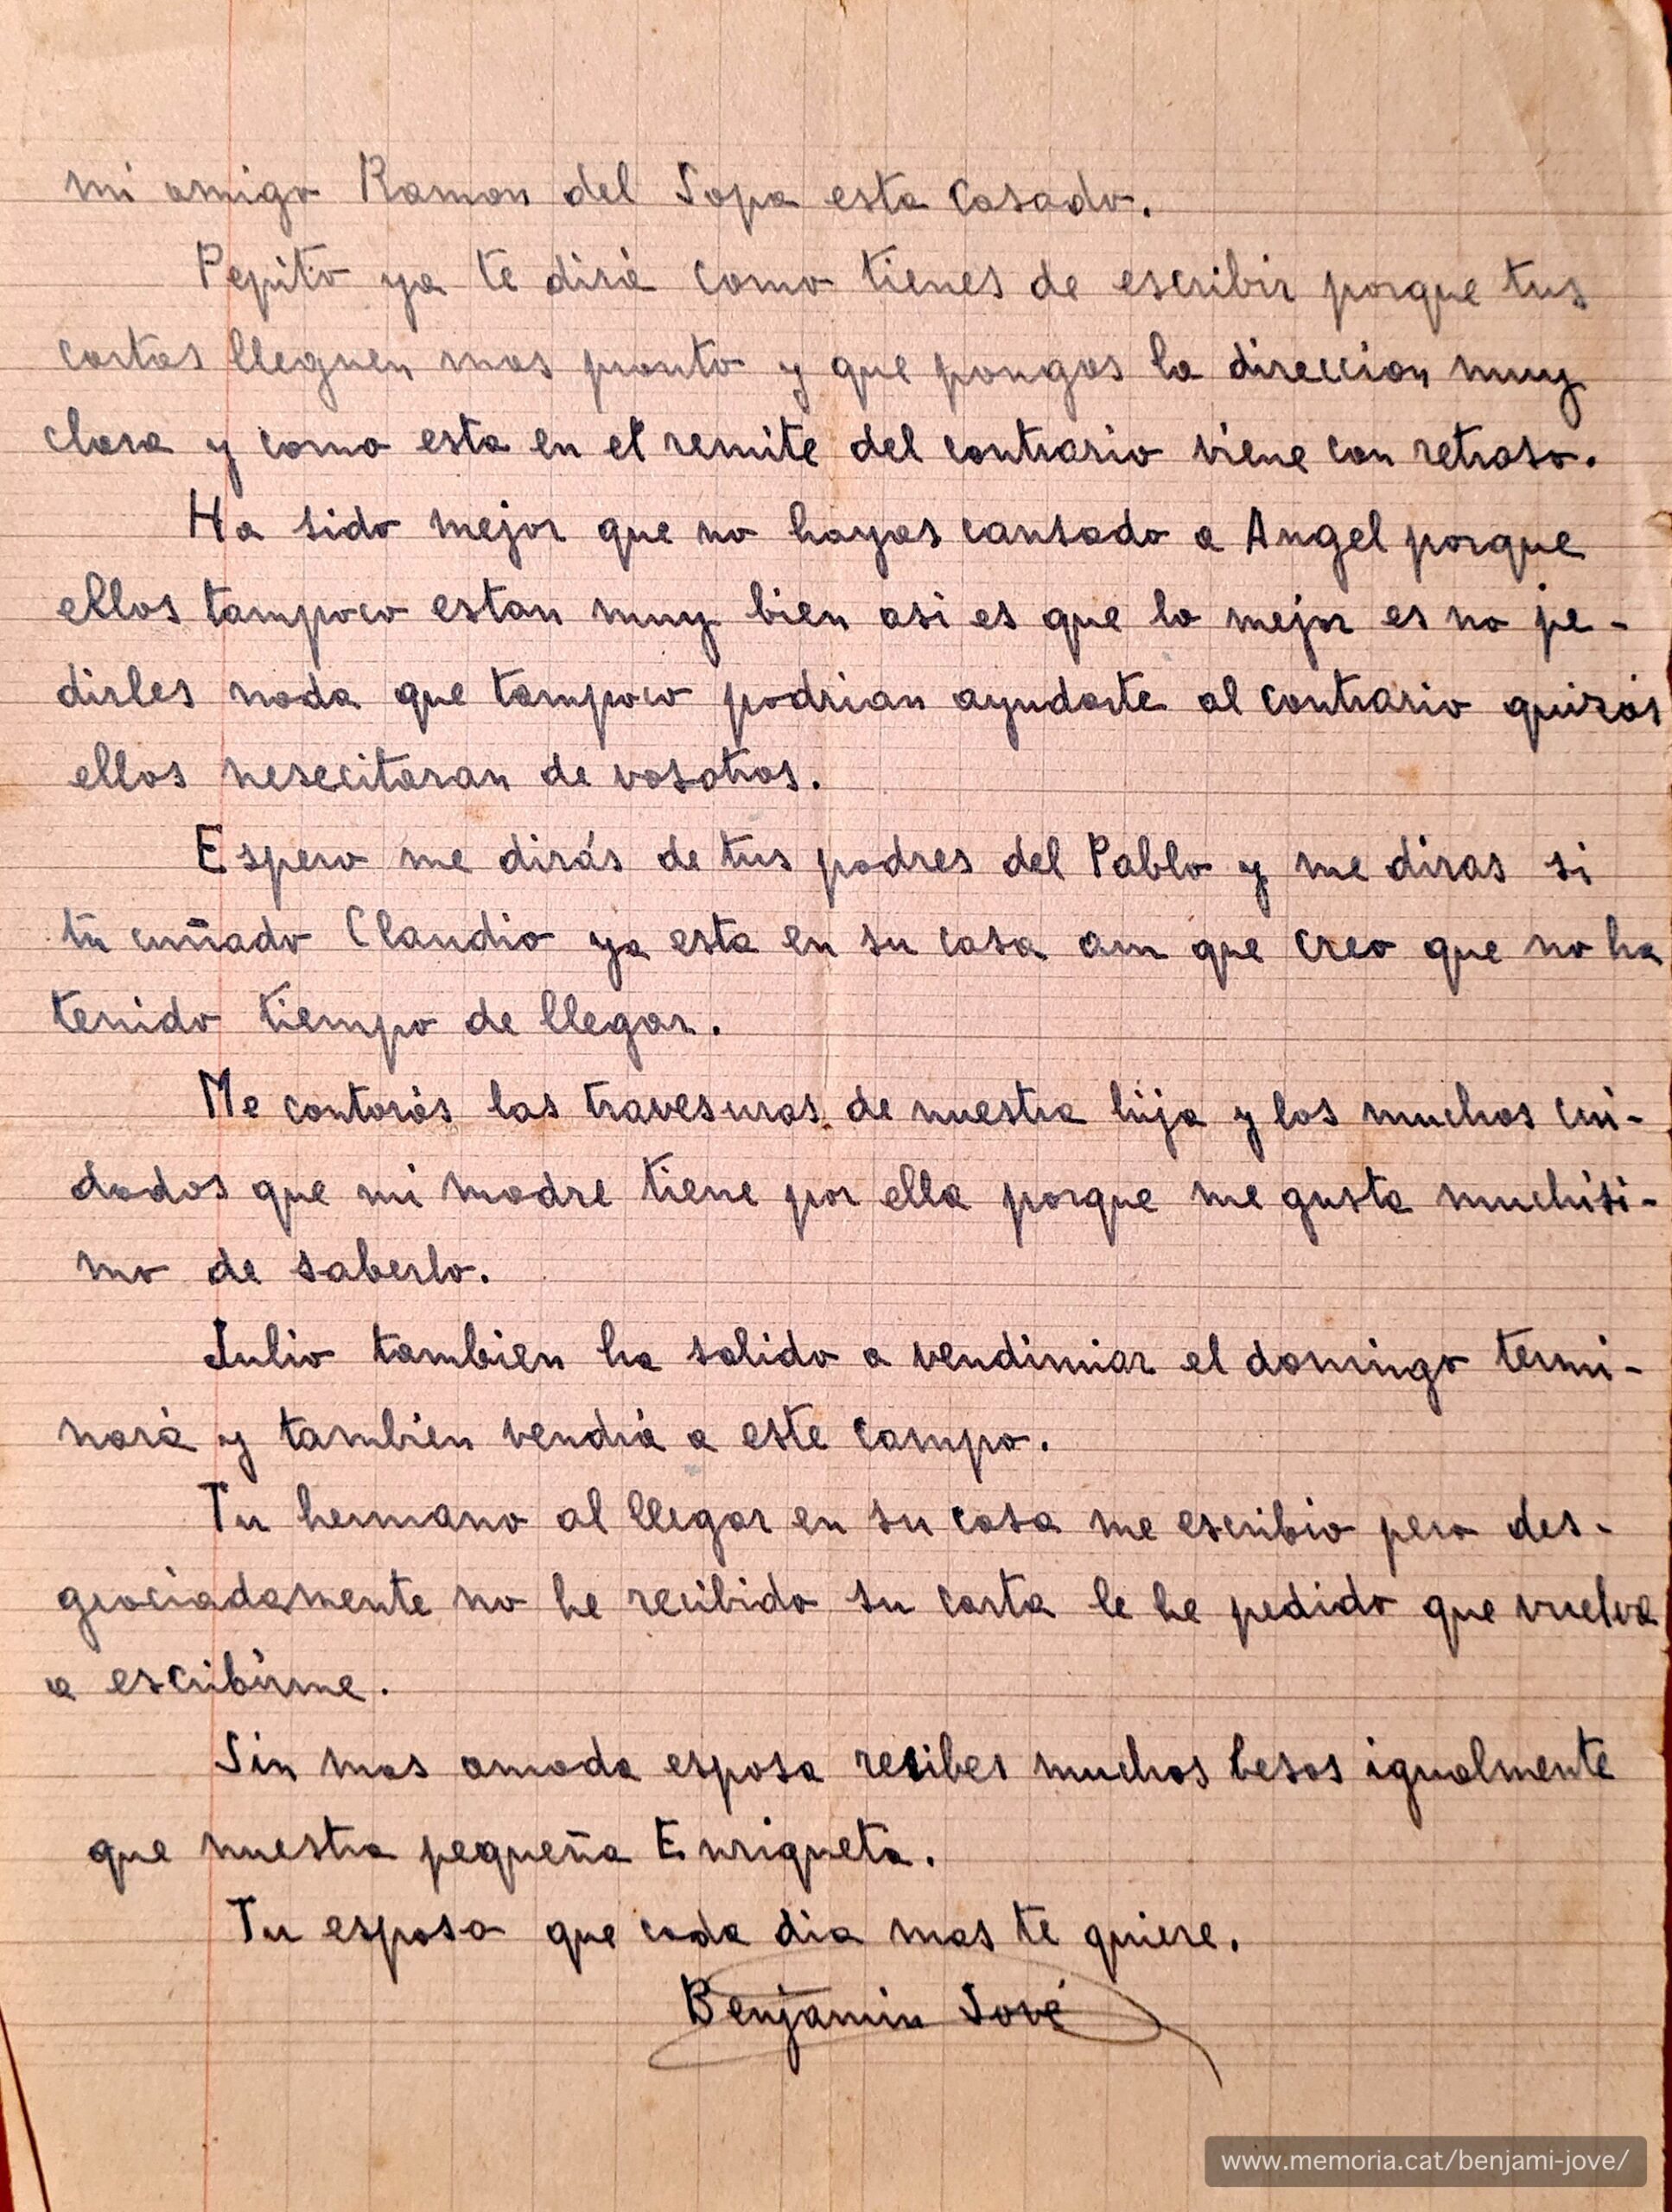 mi amigo Ramon del Sopa esta casado.
Pepito ya te dirá como tienes de escribir porque tus
cartas lleguen mas pronto y que pongas la direccion muy
clara y como esta en el remite del contrario viene con retraso.
Ha sido mejor que no hayas cansado a Angel porque
ellos tampoco estan muy bien asi es que lo mejor es no pe-
dirles nada que tampoco podrian ayudarte al contrario quizás
ellos nesecitaran de vosotros.
Espero me dirás de tus padres del Pablo y me diras si
tú cuñado Claudio ya esta en su casa aun que creo que no ha
tenido tiempo de llegar.
Me contarás las travesuras de nuestra hija y los muchos cui-
dados que mi madre tiene por ella porque me gusta muchísi-
mo de saberlo.
Julio tambien ha salido a vendimiar el domingo termi-
nará y también vendrá a este campo.
Tu hermano al llegar en su casa me escribio pero des-
graciadamente no he recibido su carta le he pedido que vuelva
a escribirme.
Sin mas amada esposa recibes muchos besos igualmente
que nuestra pequeña Enriqueta.
Tu esposo que cada dia mas te quiere.
Benjamin Jové
www.memoria.cat/benjami-jove/